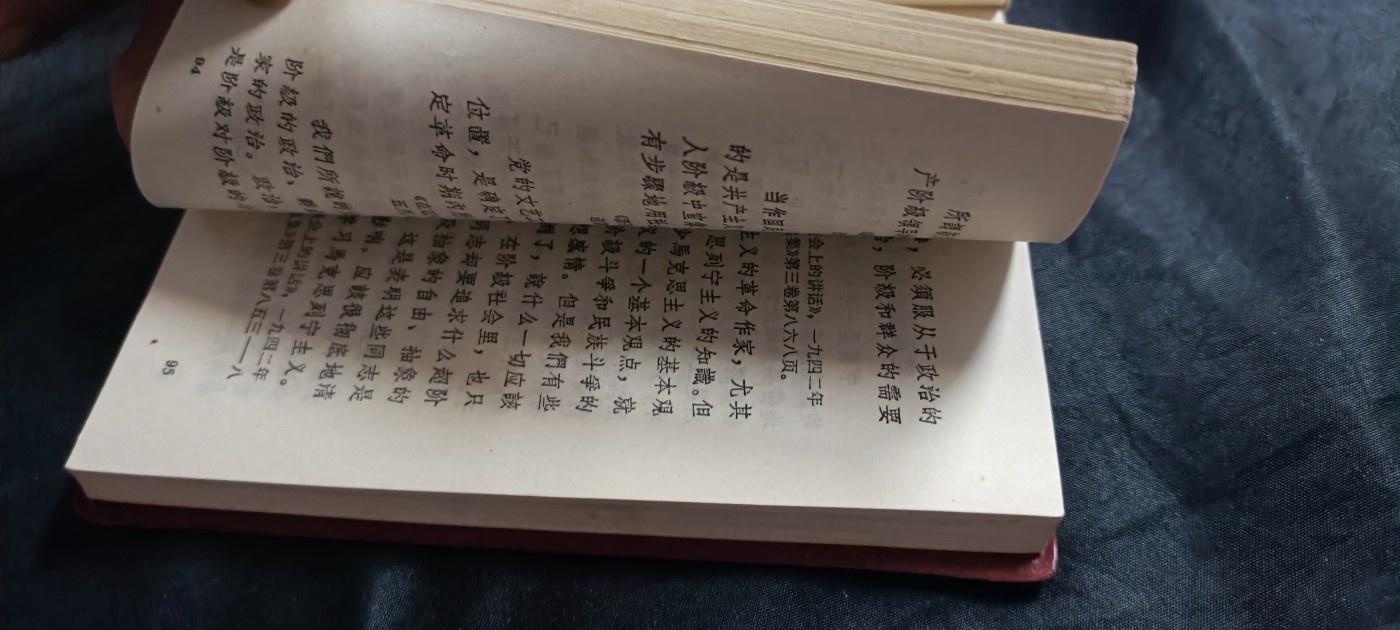 产阶級領导
的是共产
入阶級中
有步驟地用
党的文艺
位置，是确定
定革命时期
我們所說的
阶級的政治、
家的政治。政治
是阶級对阶級的
94
，必須服从于政治的
，阶級和群众的需要
会上的讲话》，一九四二年
集》第三卷第八六八页。
主义的革命作家，尤其
思列宁主义的知識。但
馬克思主义的基本观
的一个基本观点，就
阶級斗爭和民族斗爭的
思感情。但是我們有些
倒了，說什么一切应該
在阶級社会里，也只
同志却要追求什么超阶
抽象的自由、抽象的
这是表明这些同志是
影响。应該很彻底地清
学习馬克思列宁主义。
会上的讲话》，一九四二年
第三卷第八五三——八
95